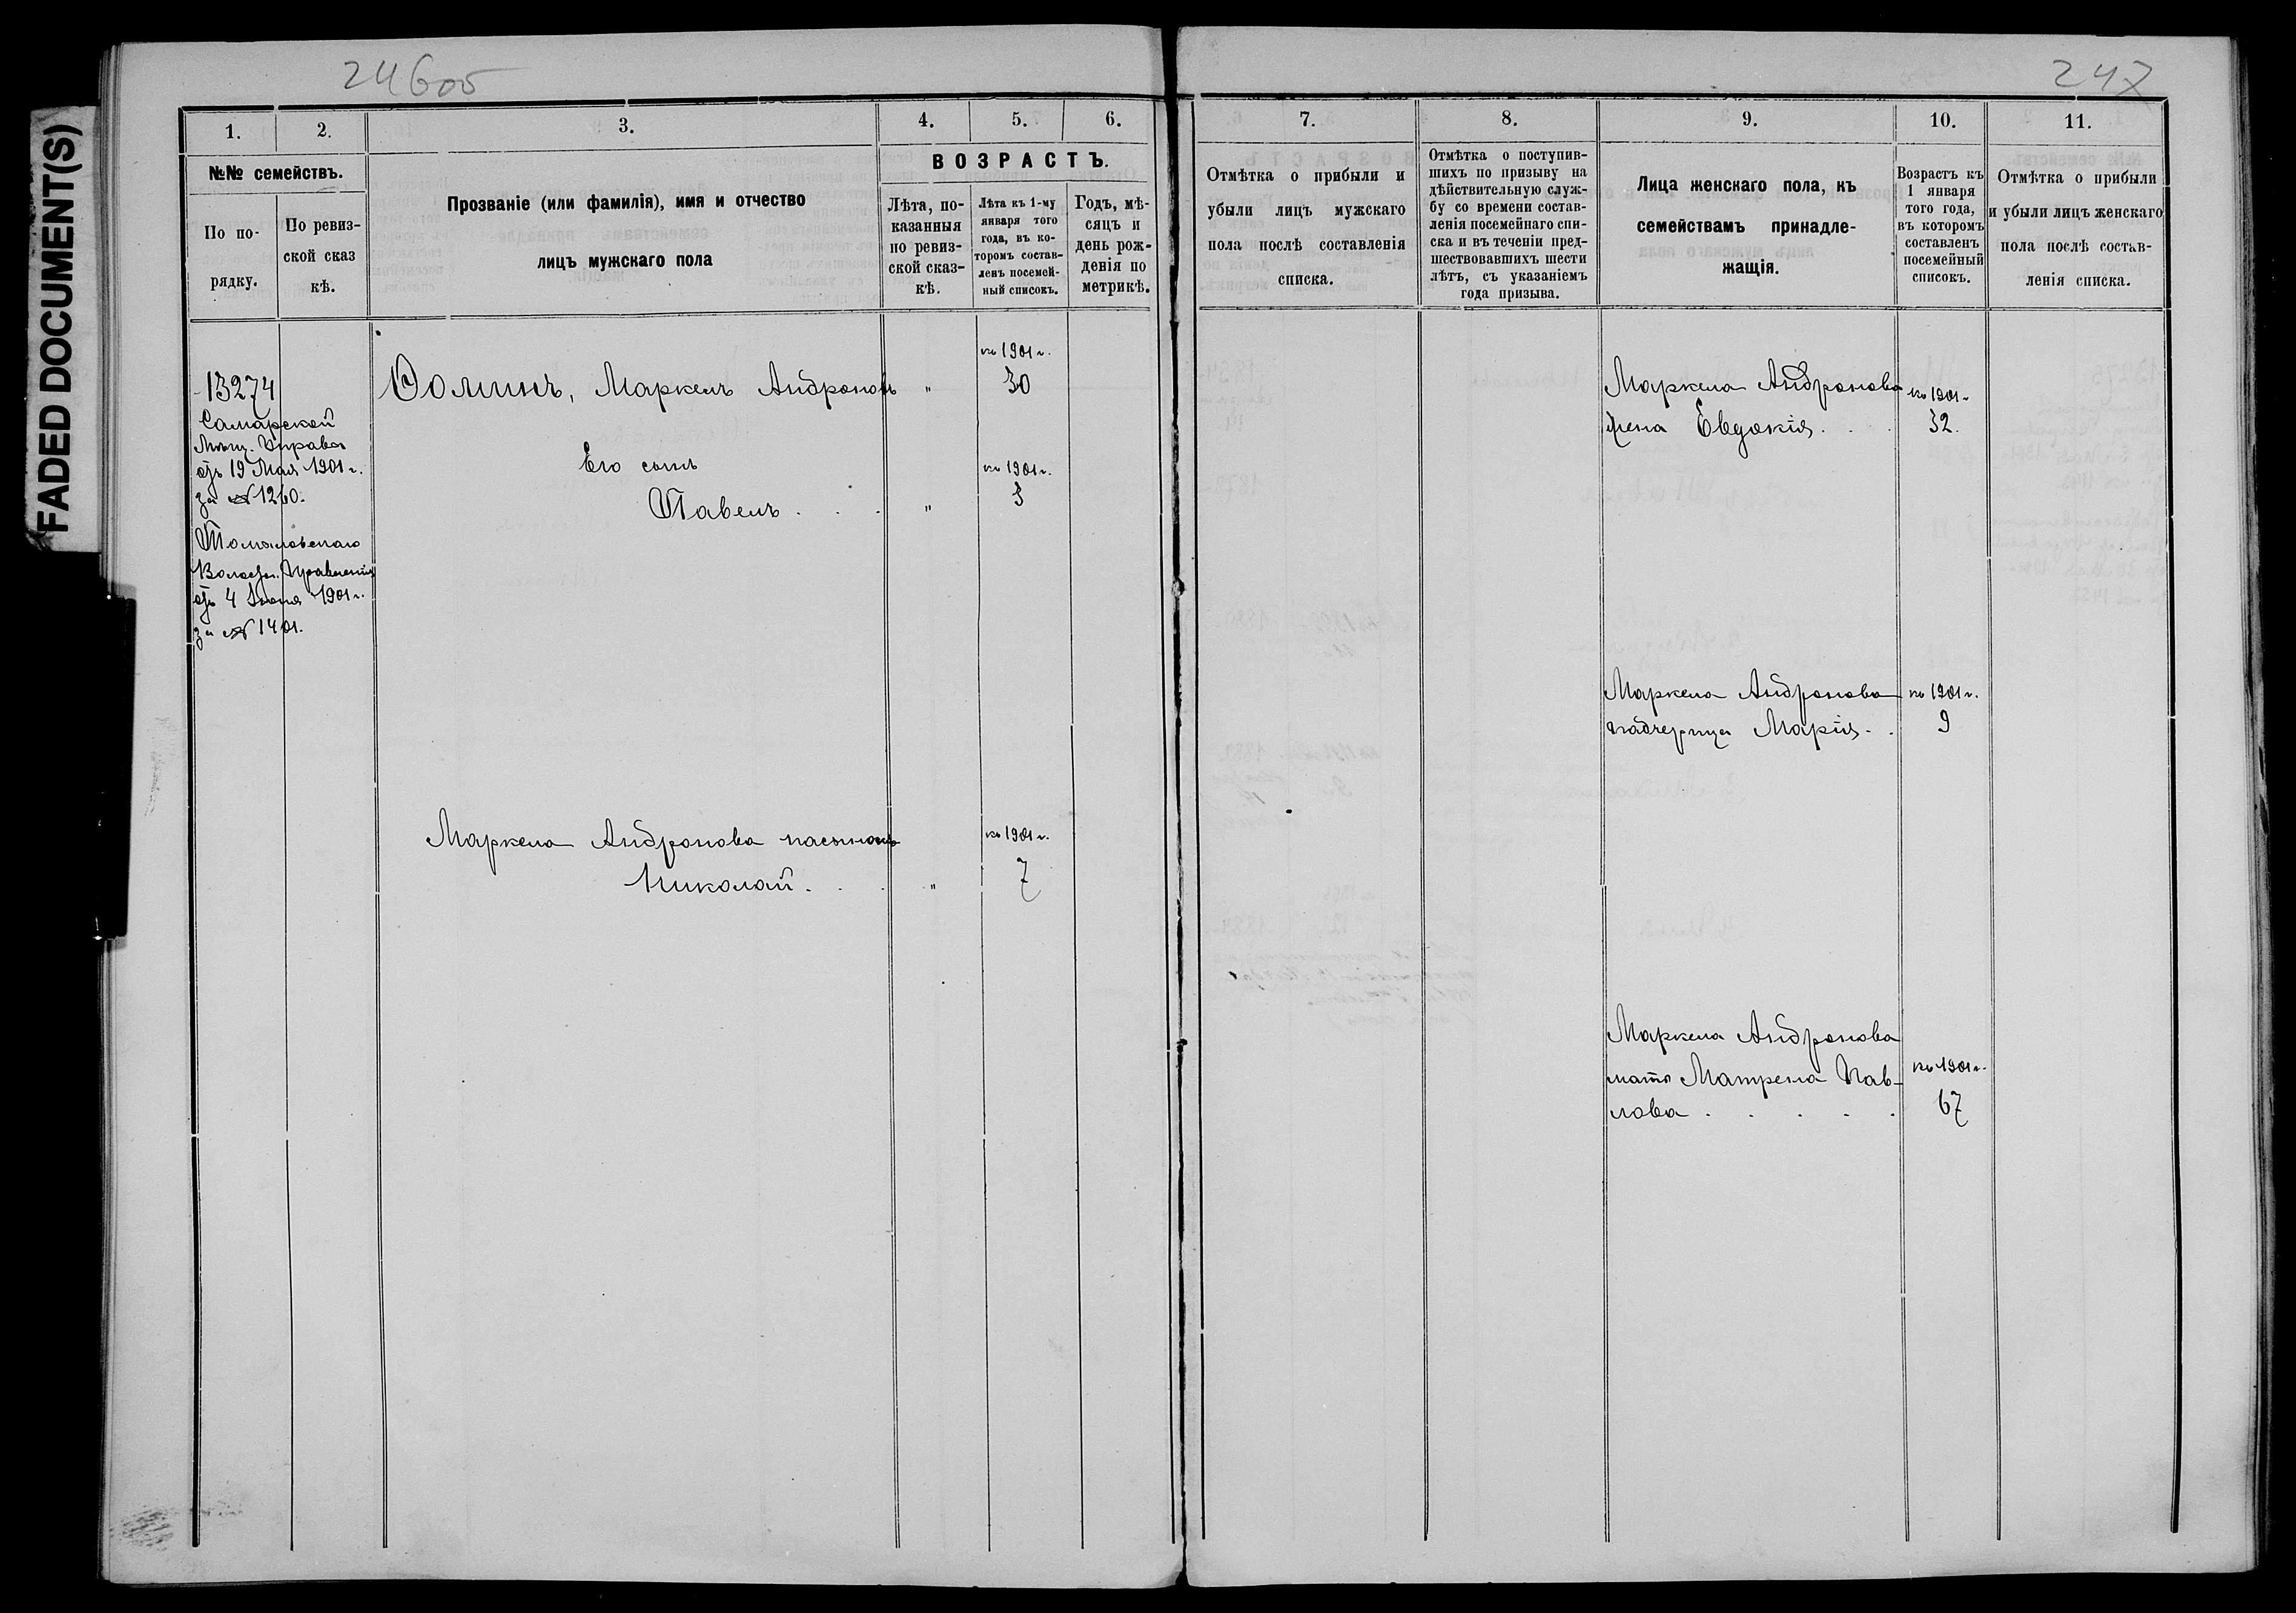 FADED DOCUMENT(S)
246об
247
1.
2.
3.
4.
5.
6.
№№ семействъ.
По по-
рядку.
По ревиз-
ской сказ
кѣ.
Прозваніе (или фамилія), имя и отчество
лицъ мужскаго пола
ВОЗРАСТЪ.
Лѣта, по-
казанныя
по ревиз-
ской сказ-
кѣ.
Лѣта къ 1-му
января того
года, въ ко-
торомъ состав-
ленъ посемей-
ный списокъ.
Годъ, мѣ-
сяцъ и
день рож-
денія по
метрикѣ.
7.
8.
9.
10.
11.
Отмѣтка о прибыли и
убыли лицъ мужскаго
пола послѣ составленія
списка.
Отмѣтка о поступив-
шихъ по призыву на
дѣйствительную служ-
бу со времени состав-
ленія посемейнаго спи-
ска и въ теченіи пред-
шествовавшихъ шести
лѣтъ, съ указаніемъ
года призыва.
Лица женскаго пола, къ
семействамъ принадле-
жащія.
Возрастъ къ
1 января
того года,
въ которомъ
составленъ
посемейный
списокъ.
Отмѣтка о прибыли
и убыли лицъ женскаго
пола послѣ состав-
ленія списка.
13274
Самарской
Мѣщ. Управы
отъ 19 Мая 1901 г.
за № 1260.
Волост. Правленія
отъ 4 Іюня 1901 г.
за № 1401.
Ѳоминъ, Маркелъ Андроновъ "
къ 1901 г.
30
Его сынъ
Павелъ . . . "
къ 1901 г.
3
Маркела Андронова пасынокъ
Николай . . . "
къ 1901 г.
7
Маркела Андронова
жена Евдокія . . .
къ 1901 г.
32.
Маркела Андронова
падчерица Марія . .
къ 1901 г.
9
Маркела Андронова
мать Матрена Пав-
лова . . . . .
къ 1901 г.
67